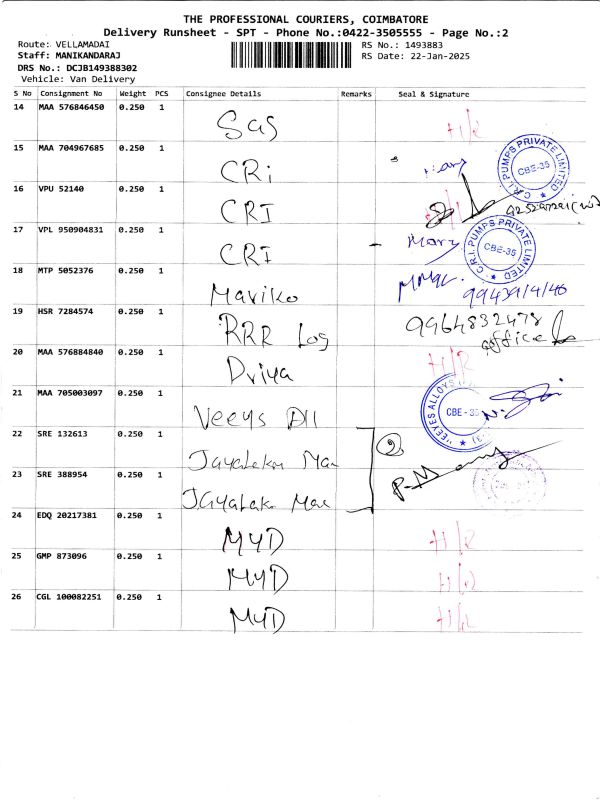 THE PROFESSIONAL COURIERS, COIMBATORE
Delivery Runsheet - SPT - Phone No.:0422-3505555 - Page No.:2
Route: VELLAMADAI
Staff: MANIKANDARAJ
DRS No.: DCJB149388302
Vehicle: Van Delivery
RS No.: 1493883
RS Date: 22-Jan-2025
S No Consignment No Weight PCS Consignee Details Remarks Seal & Signature
14 MAA 576846450 0.250 1 Sas H/R
15 MAA 704967685 0.250 1 CRi Mary
C.R.I. PUMPS PRIVATE LIMITED
CBE-35
16 VPU 52140 0.250 1 CRI
17 VPL 950904831 0.250 1 CRI Mary
C.R.I. PUMPS PRIVATE LIMITED
CBE-35
18 MTP 5052376 0.250 1 Mariko
19 HSR 7284574 0.250 1 RRR Log 9964832478
office
20 MAA 576884840 0.250 1 Driya H/R
21 MAA 705003097 0.250 1 Veeys DII
VEEYES ALLOYS
CBE - 35
22 SRE 132613 0.250 1 Jayalakm Mac 2
23 SRE 388954 0.250 1 Jayalak Mac
24 EDQ 20217381 0.250 1 MYD H/R
25 GMP 873096 0.250 1 MYD H/R
26 CGL 100082251 0.250 1 MYD H/R